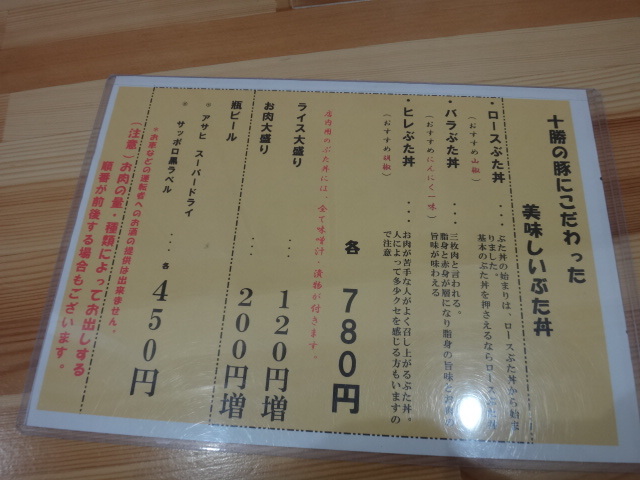 十勝の豚にこだわった
美味しいぶた丼
・ロースぶた丼 ・・・ ぶた丼の始まりは、ロースぶた丼から始まりました。
(おすすめ山椒) 基本のぶた丼を押さえるならロースぶた丼
・バラぶた丼 ・・・ 三枚肉と言われる。
(おすすめにんにく一味) 脂身と赤身が層になり脂身の旨味と
旨味が味わえる
・ヒレぶた丼 ・・・ お肉が苦手な人がよく召し上がるぶた丼。
(おすすめ胡椒) 人によって多少クセを感じる方もいますの
で注意
各 780円
店内用のぶた丼には、全て味噌汁・漬物が付きます。
ライス大盛り ・・ 120円増
お肉大盛り ・・ 200円増
瓶ビール
* アサヒ スーパードライ
* サッポロ黒ラベル ・・・ 各 450円
*お車などの運転者へのお酒の提供は出来ません。
(注意)お肉の量・種類によってお出しする
順番が前後する場合もございます。